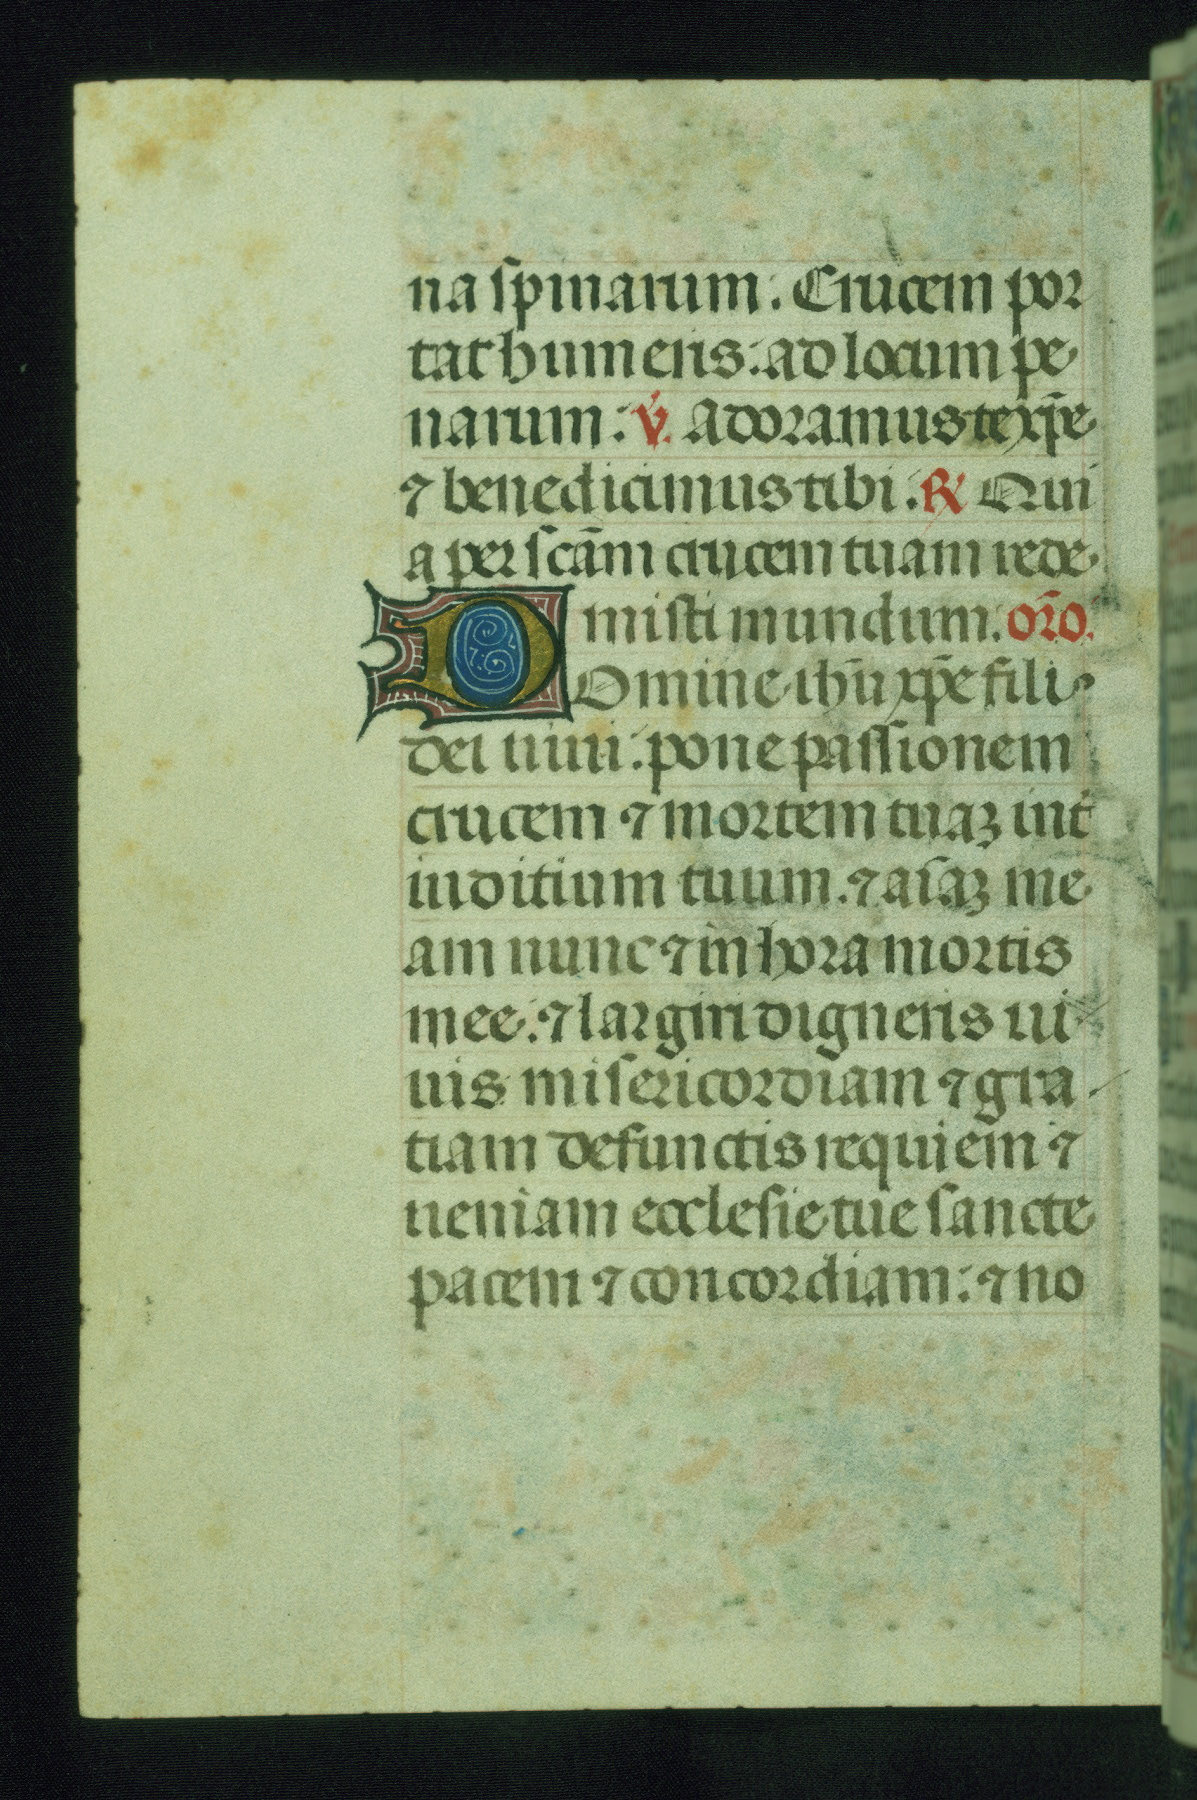 na spinarum: Crucem por
tat humeris: ad locum pe
narum: v̇. Adoramus te xp̄e
⁊ benedicimus tibi. ℞ Qui
a per scām crucem tuam rede
misti mundum: or̄o.
Domine ihū xp̄e fili
dei uiui: pone passionem
crucem ⁊ mortem tuaꝫ int̄
iuditium tuum. ⁊ aīaꝫ me
am nunc ⁊ in hora mortis
mee: ⁊ largiri digneris ui
uis misericordiam ⁊ gra
tiam defunctis requiem ⁊
ueniam ecclesie tue sancte
pacem ⁊ concordiam: ⁊ no